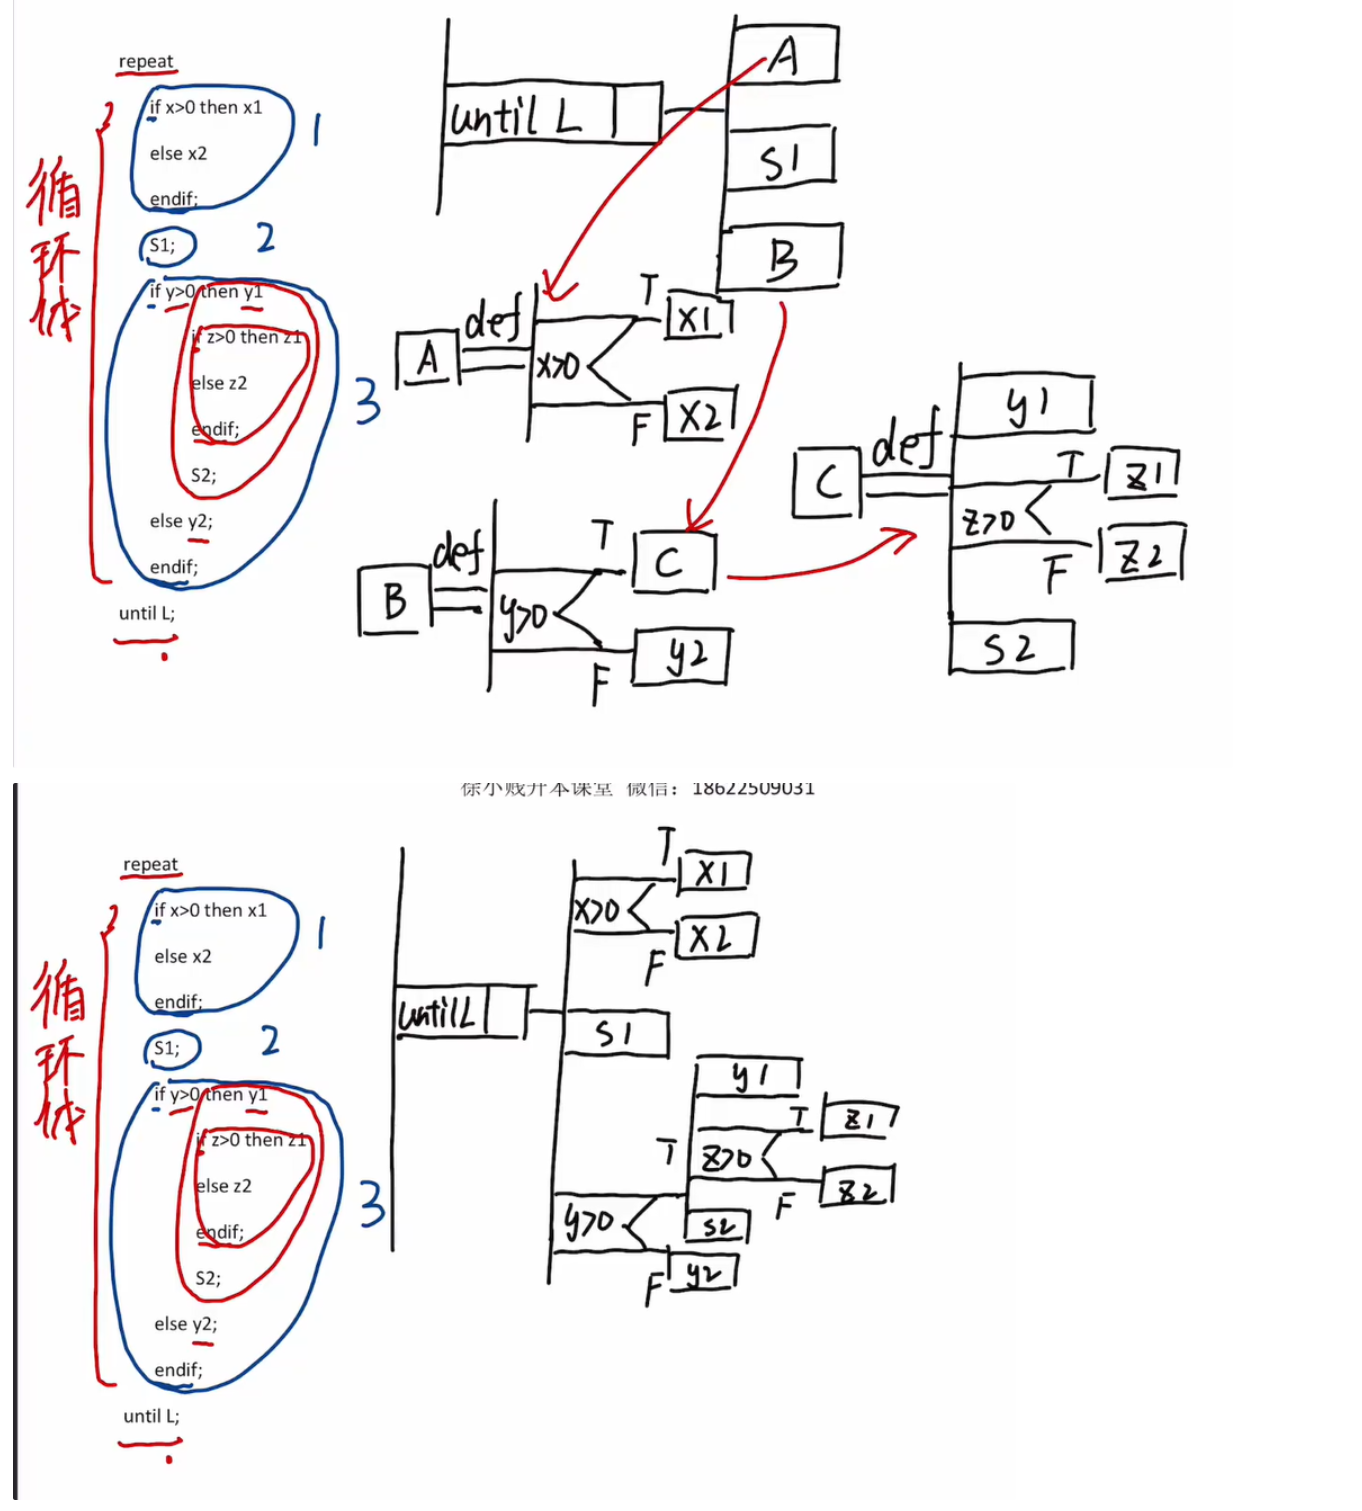 repeat
if x>0 then x1
else x2
endif;
S1;
if y>0 then y1
if z>0 then z1
else z2
endif;
S2;
else y2;
endif;
until L;
循
环
体
1
2
3
until L
A
S1
B
A
def
x>0
T
X1
F
X2
B
def
y>0
T
C
F
y2
C
def
y1
z>0
T
Z1
F
Z2
S2
徐小贱升本课堂 微信：18622509031
repeat
if x>0 then x1
else x2
endif;
S1;
if y>0 then y1
if z>0 then z1
else z2
endif;
S2;
else y2;
endif;
until L;
循
环
体
1
2
3
until L
x>0
T
X1
F
X2
S1
y>0
T
y1
z>0
T
Z1
F
Z2
S2
F
y2